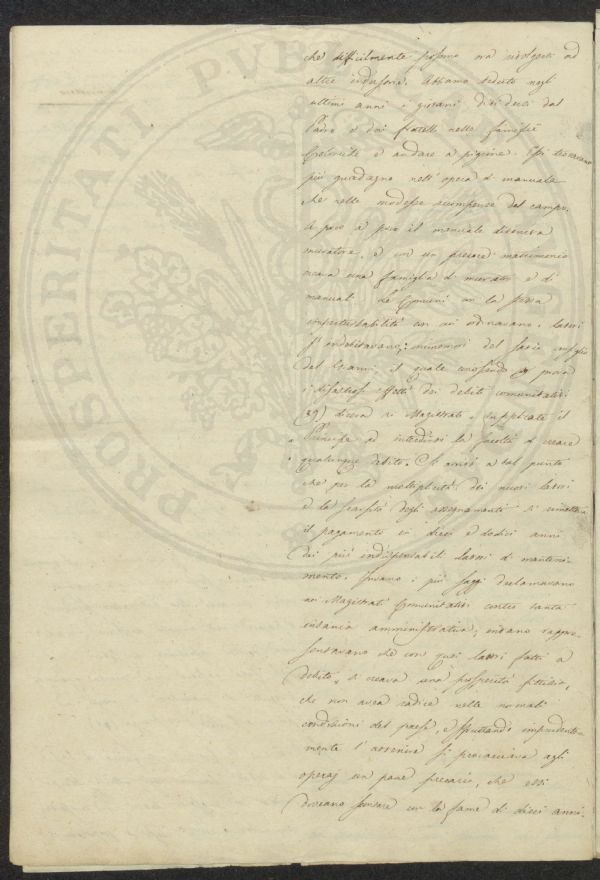 che difficilmente possono ora rivolgersi ad
altre industrie. Abbiamo veduto negli
ultimi anni i giovani dividersi dal
Padre e dai fratelli nelle famiglie
Coloniche e andare a pigione. Essi trovavano
più guadagno nell'opera di manuale
che nelle modeste ricompense del campo.
A poco a poco il manuale diveniva
muratore, e con un precoce matrimonio
creava una famiglia di muratori e di
manuali. Le Comuni con la stessa
imperturbabilità con cui ordinavano i lavori
s'indebitavano; immemori del savio consiglio
del Gianni, il quale conoscendo per prova
i disastrosi effetti dei debiti comunitativi
(39) diceva ai Magistrati: supplicate il
Principe ad interdirvi la facoltà di creare
qualunque debito. Si arrivò a tal punto
che per la molteplicità dei nuovi lavori
e la scarsità degli assegnamenti si rimetteva
il pagamento in dieci e dodici anni
dei più indispensabili lavori di manteni-
mento. Invano i più saggi declamavano
nei Magistrati Comunitativi contro tanta
insania amministrativa, invano rappre-
sentavano che con quei lavori fatti a
debito, si creava una prosperità fittizia,
che non avea radice nelle normali
condizioni del paese, e sfruttando imprudente-
mente l'avvenire si procacciava agli
operaj un pane precario, che essi
doveano scontare con la fame di dieci anni.
PROSPERITATI PVBLICAE